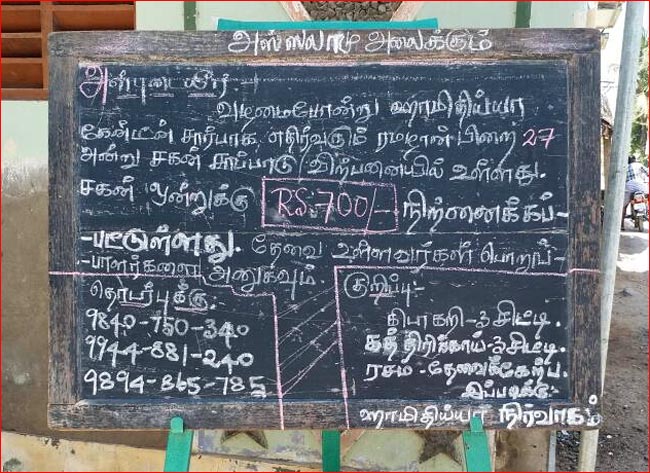 அஸ்ஸலாமு அலைக்கும்
அன்புடையீர் -
வழமைபோன்று ஹாமிதிய்யா
கேன்டீன் சார்பாக எதிர்வரும் ரமழான் பிறை 27
அன்று சகன் சாப்பாடு விற்பனையில் உள்ளது.
சகன் ஒன்றுக்கு RS:700/- நிர்ணைக்கப்-
-பட்டுள்ளது. தேவை உள்ளவர்கள் பொறுப்-
-பாளர்களை அனுகவும்.
தொடர்புக்கு.
9840-750-340
9944-881-240
9894-865-785
குறிப்பு:-
கிபாகறி-3 சிட்டி.
கத்திரிக்காய்-3 சிட்டி.
ரசம்-தேவைக்கேற்ப.
இப்படிக்கு:
ஹாமிதிய்யா நிர்வாகம்